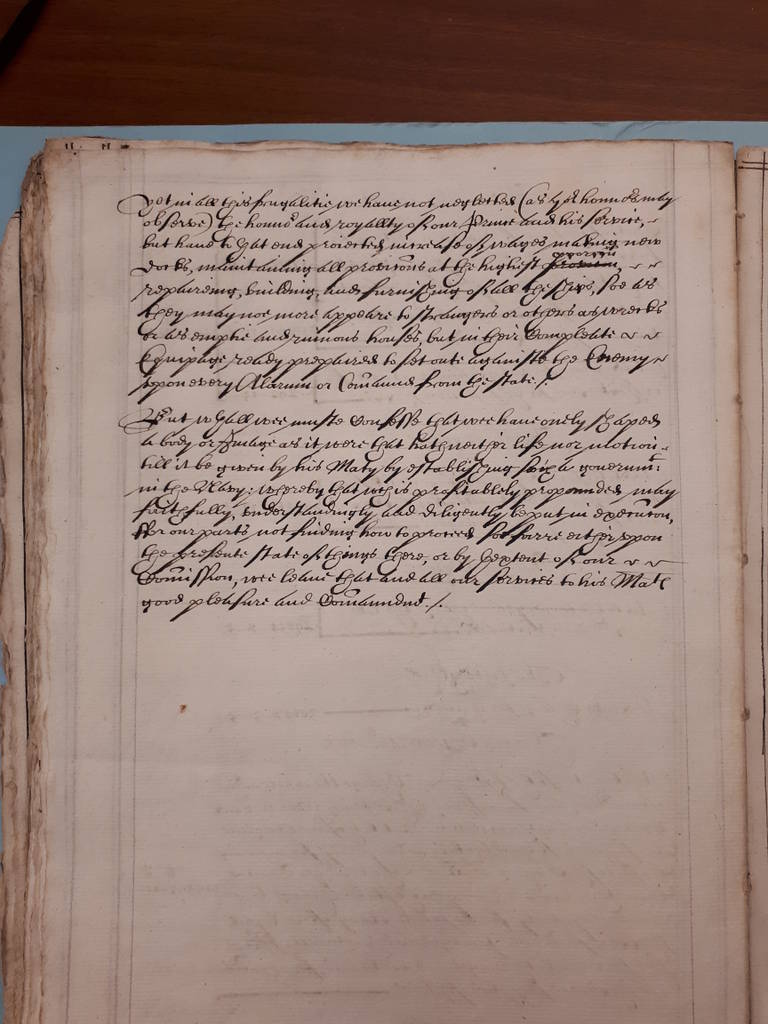 Yet in all this frugalitie we have not neglected (as yor honnors may
observe) the honnor and royallty of our Prince and his service,
but have to that end proiected increase of wages making new
Docks, maintaining all provisions at the highest
repaireing, building, and furnishing of all the ships, soe as
they may noe more appeare to strangers or others as wrecks
or as emptie and ruinous houses, but in their Compleate
Equipage ready prepaired to set oute againste the Enemy
upon every Alarum or Comaund from the state./.
But wthall wee muste Confesse that wee have onely shaped
a body or Image as it were that hath neither life nor motion
till it be given by his Maty by establishing such a governmt:
in the Navy: whereby that wch is profitablely propounded may
faithfully, understandingly and diligently be put in execution,
ffor our parts not finding how to proceed soe farre either upon
the presente state of things there, or by thextent of our
Comission, wee leave that and all our services to his Mats
good pleasure and Comaundmt./.